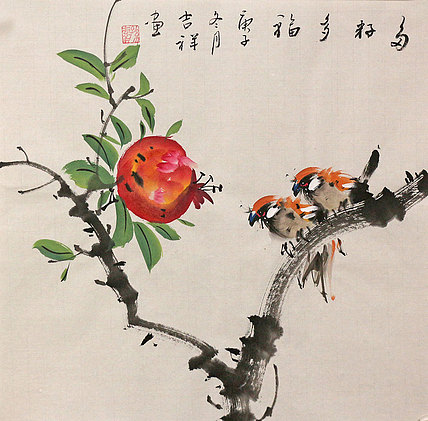 多籽多福
庚子
冬月
吉祥
画